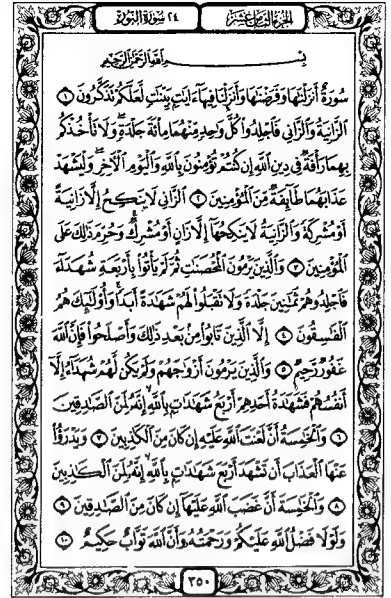 الجزء الثامن عشر
٢٤ سورة النور
بِسْمِ اللَّهِ الرَّحْمَٰنِ الرَّحِيمِ
سُورَةٌ أَنزَلْنَٰهَا وَفَرَضْنَٰهَا وَأَنزَلْنَا فِيهَآ ءَايَٰتٍۭ بَيِّنَٰتٍ لَّعَلَّكُمْ تَذَكَّرُونَ ١
ٱلزَّانِيَةُ وَٱلزَّانِي فَٱجْلِدُوا۟ كُلَّ وَٰحِدٍ مِّنْهُمَا مِا۟ئَةَ جَلْدَةٍ وَلَا تَأْخُذْكُم
بِهِمَا رَأْفَةٌ فِي دِينِ ٱللَّهِ إِن كُنتُمْ تُؤْمِنُونَ بِٱللَّهِ وَٱلْيَوْمِ ٱلْـَٔاخِرِ وَلْيَشْهَدْ
عَذَابَهُمَا طَآئِفَةٌ مِّنَ ٱلْمُؤْمِنِينَ ٢ ٱلزَّانِي لَا يَنكِحُ إِلَّا زَانِيَةً
أَوْ مُشْرِكَةً وَٱلزَّانِيَةُ لَا يَنكِحُهَآ إِلَّا زَانٍ أَوْ مُشْرِكٌ وَحُرِّمَ ذَٰلِكَ عَلَى
ٱلْمُؤْمِنِينَ ٣ وَٱلَّذِينَ يَرْمُونَ ٱلْمُحْصَنَٰتِ ثُمَّ لَمْ يَأْتُوا۟ بِأَرْبَعَةِ شُهَدَآءَ
فَٱجْلِدُوهُمْ ثَمَٰنِينَ جَلْدَةً وَلَا تَقْبَلُوا۟ لَهُمْ شَهَٰدَةً أَبَدًا وَأُو۟لَٰٓئِكَ هُمُ
ٱلْفَٰسِقُونَ ٤ إِلَّا ٱلَّذِينَ تَابُوا۟ مِنۢ بَعْدِ ذَٰلِكَ وَأَصْلَحُوا۟ فَإِنَّ ٱللَّهَ
غَفُورٌ رَّحِيمٌ ٥ وَٱلَّذِينَ يَرْمُونَ أَزْوَٰجَهُمْ وَلَمْ يَكُن لَّهُمْ شُهَدَآءُ إِلَّآ
أَنفُسُهُمْ فَشَهَٰدَةُ أَحَدِهِمْ أَرْبَعُ شَهَٰدَٰتٍۭ بِٱللَّهِ إِنَّهُۥ لَمِنَ ٱلصَّٰدِقِينَ
٦ وَٱلْخَٰمِسَةُ أَنَّ لَعْنَتَ ٱللَّهِ عَلَيْهِ إِن كَانَ مِنَ ٱلْكَٰذِبِينَ ٧ وَيَدْرَؤُا۟
عَنْهَا ٱلْعَذَابَ أَن تَشْهَدَ أَرْبَعَ شَهَٰدَٰتٍۭ بِٱللَّهِ إِنَّهُۥ لَمِنَ ٱلْكَٰذِبِينَ
٨ وَٱلْخَٰمِسَةَ أَنَّ غَضَبَ ٱللَّهِ عَلَيْهَآ إِن كَانَ مِنَ ٱلصَّٰدِقِينَ ٩
وَلَوْلَا فَضْلُ ٱللَّهِ عَلَيْكُمْ وَرَحْمَتُهُۥ وَأَنَّ ٱللَّهَ تَوَّابٌ حَكِيمٌ ١٠
٣٥٠